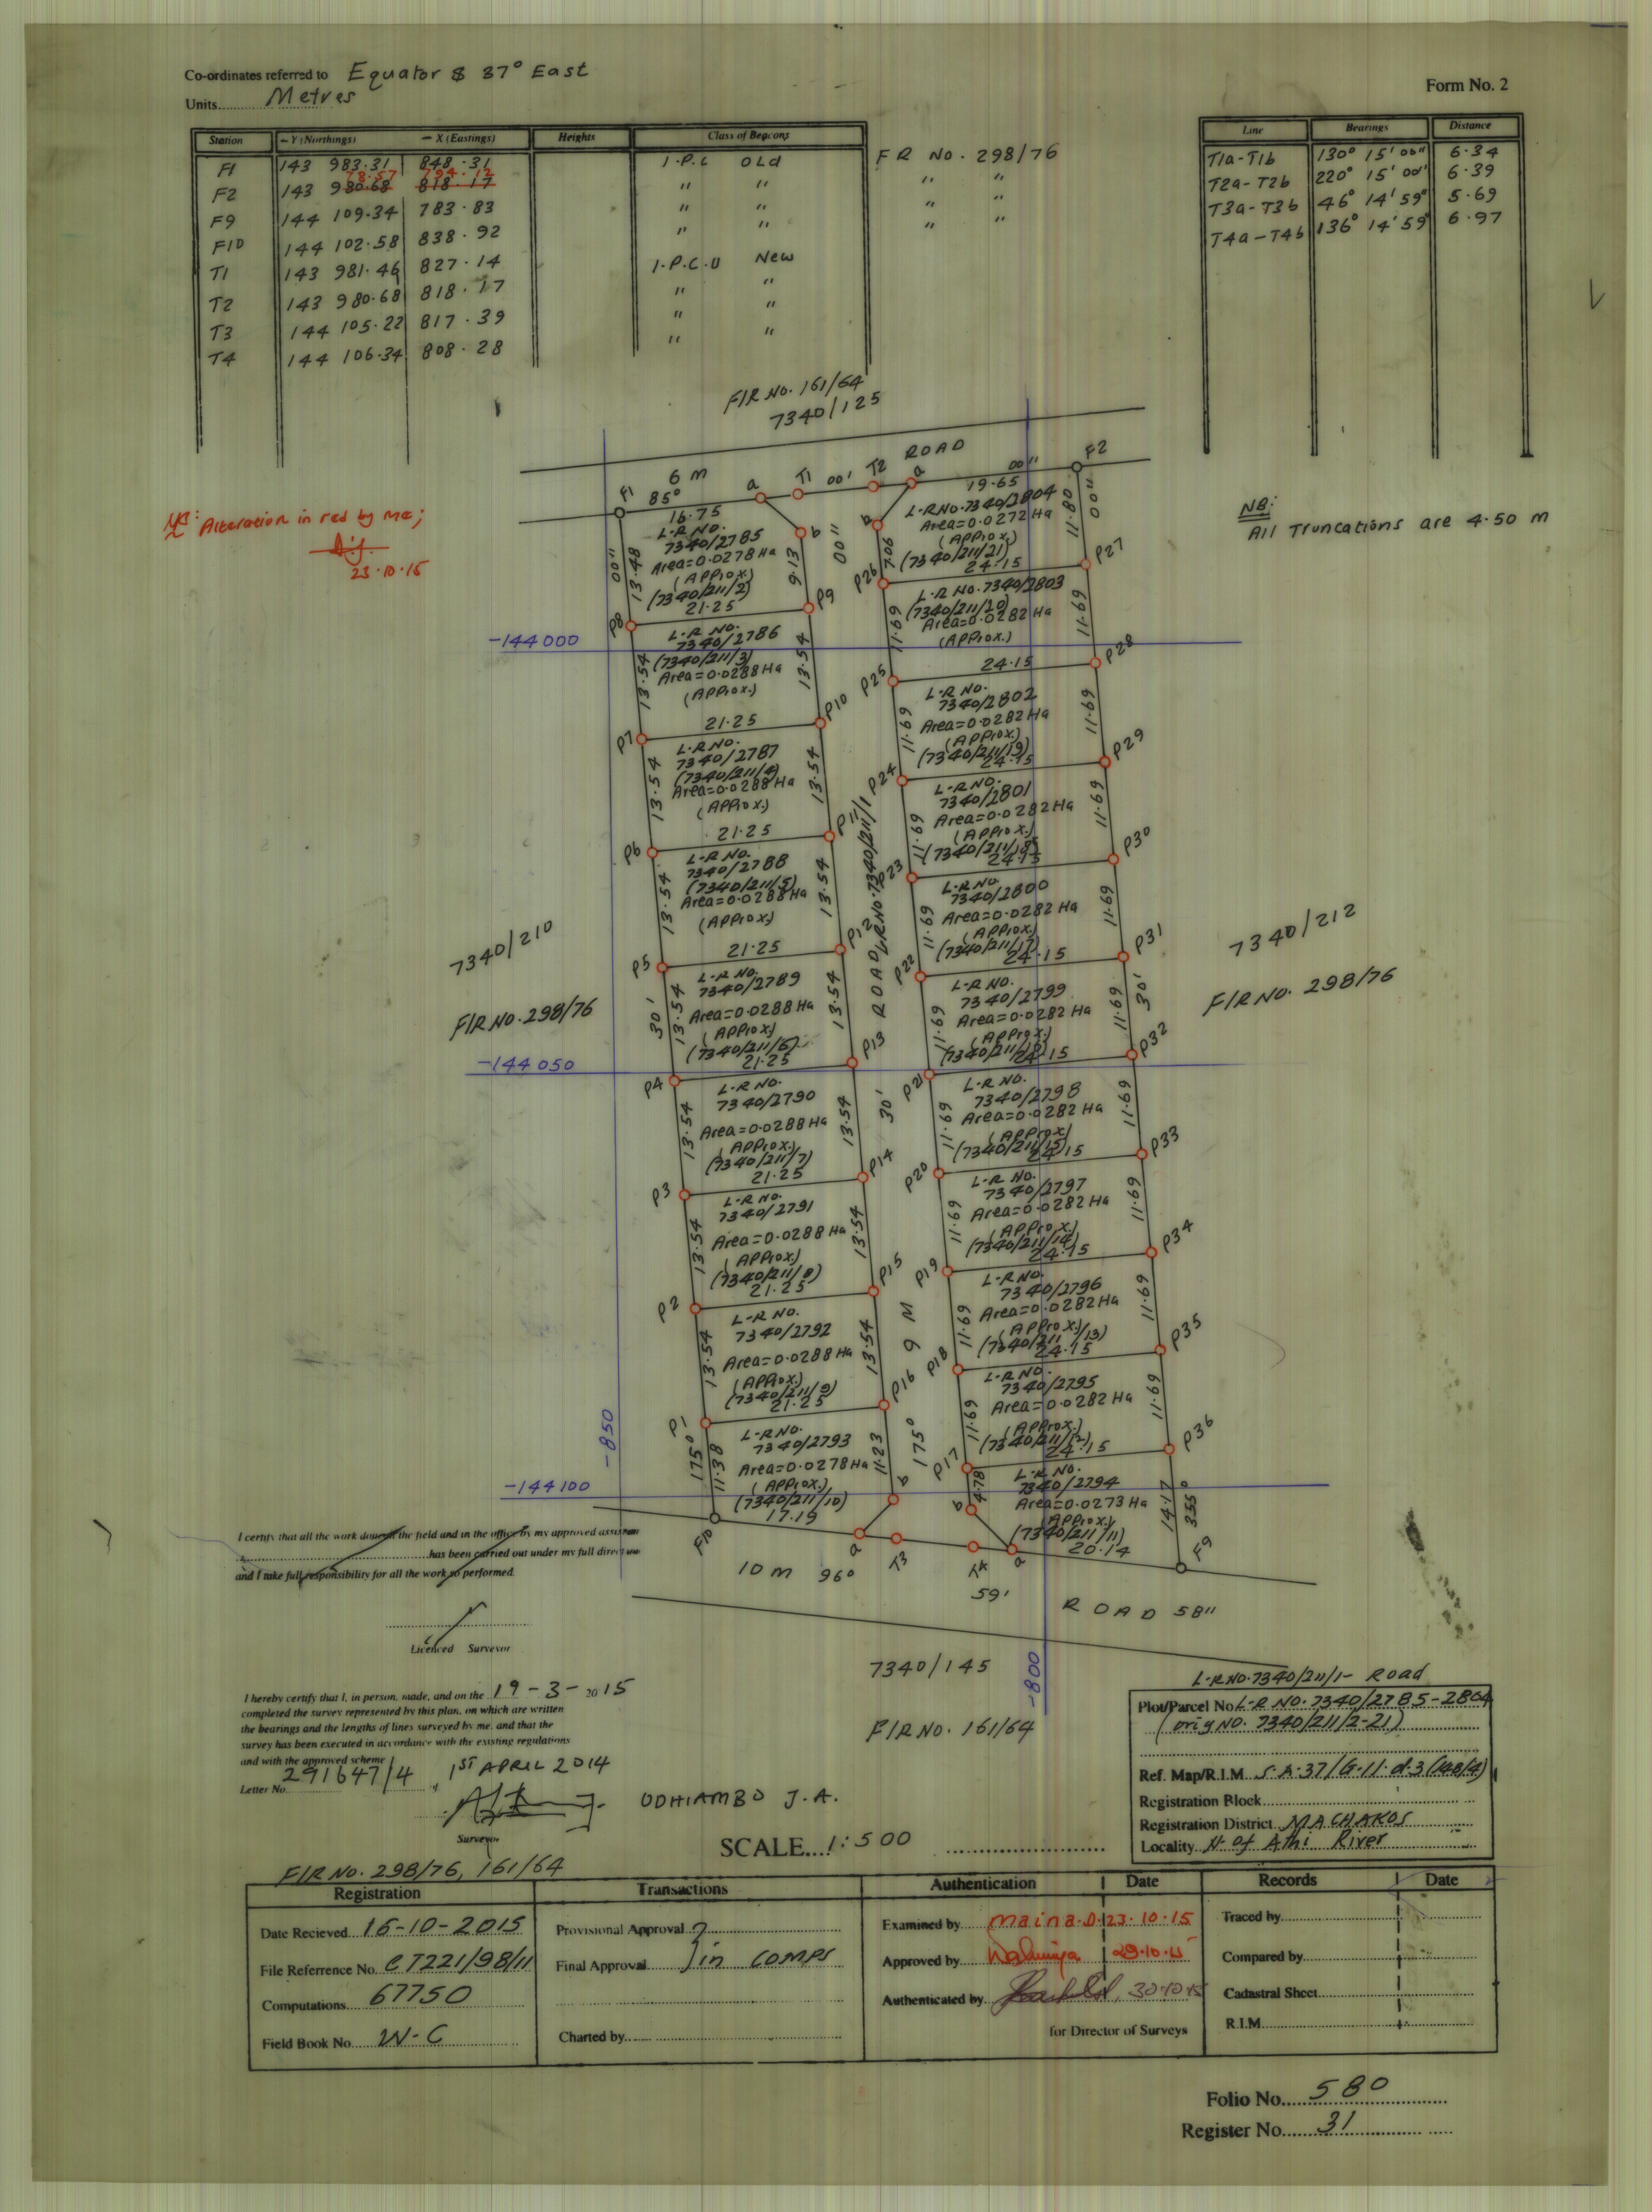 Co-ordinates referred to Equator & 37° East
Units Metres
Form No. 2
Station – Y (Northings) – X (Eastings) Heights Class of Beacons
F1 143 983.31 848.31 I.P.C Old F R No. 298/76
78.57 794.12
F2 143 980.68 818.17 " " " "
F9 144 109.34 783.83 " " " "
F10 144 102.58 838.92 " " " "
T1 143 981.46 827.14 I.P.C.U New
T2 143 980.68 818.17 " "
T3 144 105.22 817.39 " "
T4 144 106.34 808.28 " "
Line Bearings Distance
T1a-T1b 130° 15' 00" 6.34
T2a-T2b 220° 15' 00" 6.39
T3a-T3b 46° 14' 59" 5.69
T4a-T4b 136° 14' 59" 6.97
F/R No. 161/64
7340/125
ROAD
6 m
F1 85° a T1 00' T2 a 00" F2
16.75 19.65
Alteration in red by me;
23.10.15
NB:
All Truncations are 4.50 m
L.R NO.
7340/2785
Area=0.0278 Ha
(APProx.)
(7340/211/2)
21.25
00" 13.48 9.13 b 00"
b 7.06 11.80 00"
L.R NO.7340/2804
Area=0.0272 Ha
(APProx.)
(7340/211/21)
24.15
P8 P9 P26 P27
-144000
L.R NO.
7340/2786
(7340/211/3)
Area=0.0288 Ha
(APProx.)
21.25
13.54 13.54
L.R NO.7340/2803
(7340/211/20)
Area=0.0282 Ha
(APProx.)
24.15
11.69 11.69
P7 P10 P25 P28
L.R NO.
7340/2787
(7340/211/4)
Area=0.0288 Ha
(APProx.)
21.25
13.54 13.54
L.R NO.
7340/2802
Area=0.0282 Ha
(APProx.)
(7340/211/19)
24.15
11.69 11.69
P6 P11 P24 P29
L.R NO.
7340/2788
(7340/211/5)
Area=0.0288 Ha
(APProx.)
21.25
13.54 13.54
L.R NO.
7340/2801
Area=0.0282 Ha
(APProx.)
(7340/211/18)
24.15
11.69 11.69
P5 P12 P23 P30
ROAD L.R No.7340/211/1
7340/210
F/R NO.298/76
7340/212
F/R NO. 298/76
L.R NO.
7340/2789
Area=0.0288 Ha
(APProx.)
(7340/211/6)
21.25
30' 13.54 13.54
L.R NO.
7340/2800
Area=0.0282 Ha
(APProx.)
(7340/211/17)
24.15
11.69 11.69
P4 P13 P22 P31
L.R NO.
7340/2799
Area=0.0282 Ha
(APProx.)
(7340/211/16)
24.15
11.69 11.69 30'
P21 P32
-144050
L.R NO.
7340/2790
Area=0.0288 Ha
(APProx.)
(7340/211/7)
21.25
13.54 13.54 30'
L.R NO.
7340/2798
Area=0.0282 Ha
(APProx)
(7340/211/15)
24.15
11.69 11.69
P3 P14 P20 P33
L.R NO.
7340/2791
Area=0.0288 Ha
(APProx)
(7340/211/8)
21.25
13.54 13.54
L.R NO.
7340/2797
Area=0.0282 Ha
(APProx.)
(7340/211/14)
24.15
11.69 11.69
P2 P15 P19 P34
9 M
L.R NO.
7340/2792
Area=0.0288 Ha
(APProx.)
(7340/211/9)
21.25
13.54 13.54
L.R NO.
7340/2796
Area=0.0282 Ha
(APProx.)
(7340/211/13)
24.15
11.69 11.69
P1 P16 P18 P35
L.R NO.
7340/2795
Area=0.0282 Ha
(APProx.)
(7340/211/12)
24.15
11.69 11.69
P17 P36
-850
L.R NO.
7340/2793
Area=0.0278 Ha
(APProx.)
(7340/211/10)
17.19
175° 11.38 11.23 175° b
L.R NO.
7340/2794
Area=0.0273 Ha
(APProx.)
(7340/211/11)
20.14
b 4.78 14.17 355°
-144100
F10 a T3 T4 a F9
10 m 96° 59' ROAD 58"
-800
7340/145
F/R NO. 161/64
I certify that all the work done in the field and in the office by my approved assistant
has been carried out under my full direction
and I take full responsibility for all the work so performed.
Licenced Surveyor
I hereby certify that I, in person, made, and on the 19-3-2015
completed the survey represented by this plan, on which are written
the bearings and the lengths of lines surveyed by me, and that the
survey has been executed in accordance with the existing regulations
and with the approved scheme
Letter No. 291647/4 1ST APRIL 2014
ODHIAMBO J.A.
Surveyor
SCALE 1:500
L.R NO.7340/211/1- Road
Plot/Parcel No L.R NO. 7340/2785-2804
(orig NO. 7340/211/2-21)
Ref. Map/R.I.M. S.A.37/G.11.d.3(148/4)
Registration Block
Registration District MACHAKOS
Locality N. of Athi River
F/R No. 298/76, 161/64
Registration Transactions Authentication Date Records Date
Date Recieved 16-10-2015
File Referrence No. CT221/98/11
Computations 67750
Field Book No. W-C
Provisional Approval
Final Approval in comps
Charted by
Examined by maina.D. 23.10.15
Approved by 29.10.15
Authenticated by 30.10.15
for Director of Surveys
Traced by
Compared by
Cadastral Sheet
R.I.M.
Folio No. 580
Register No. 31